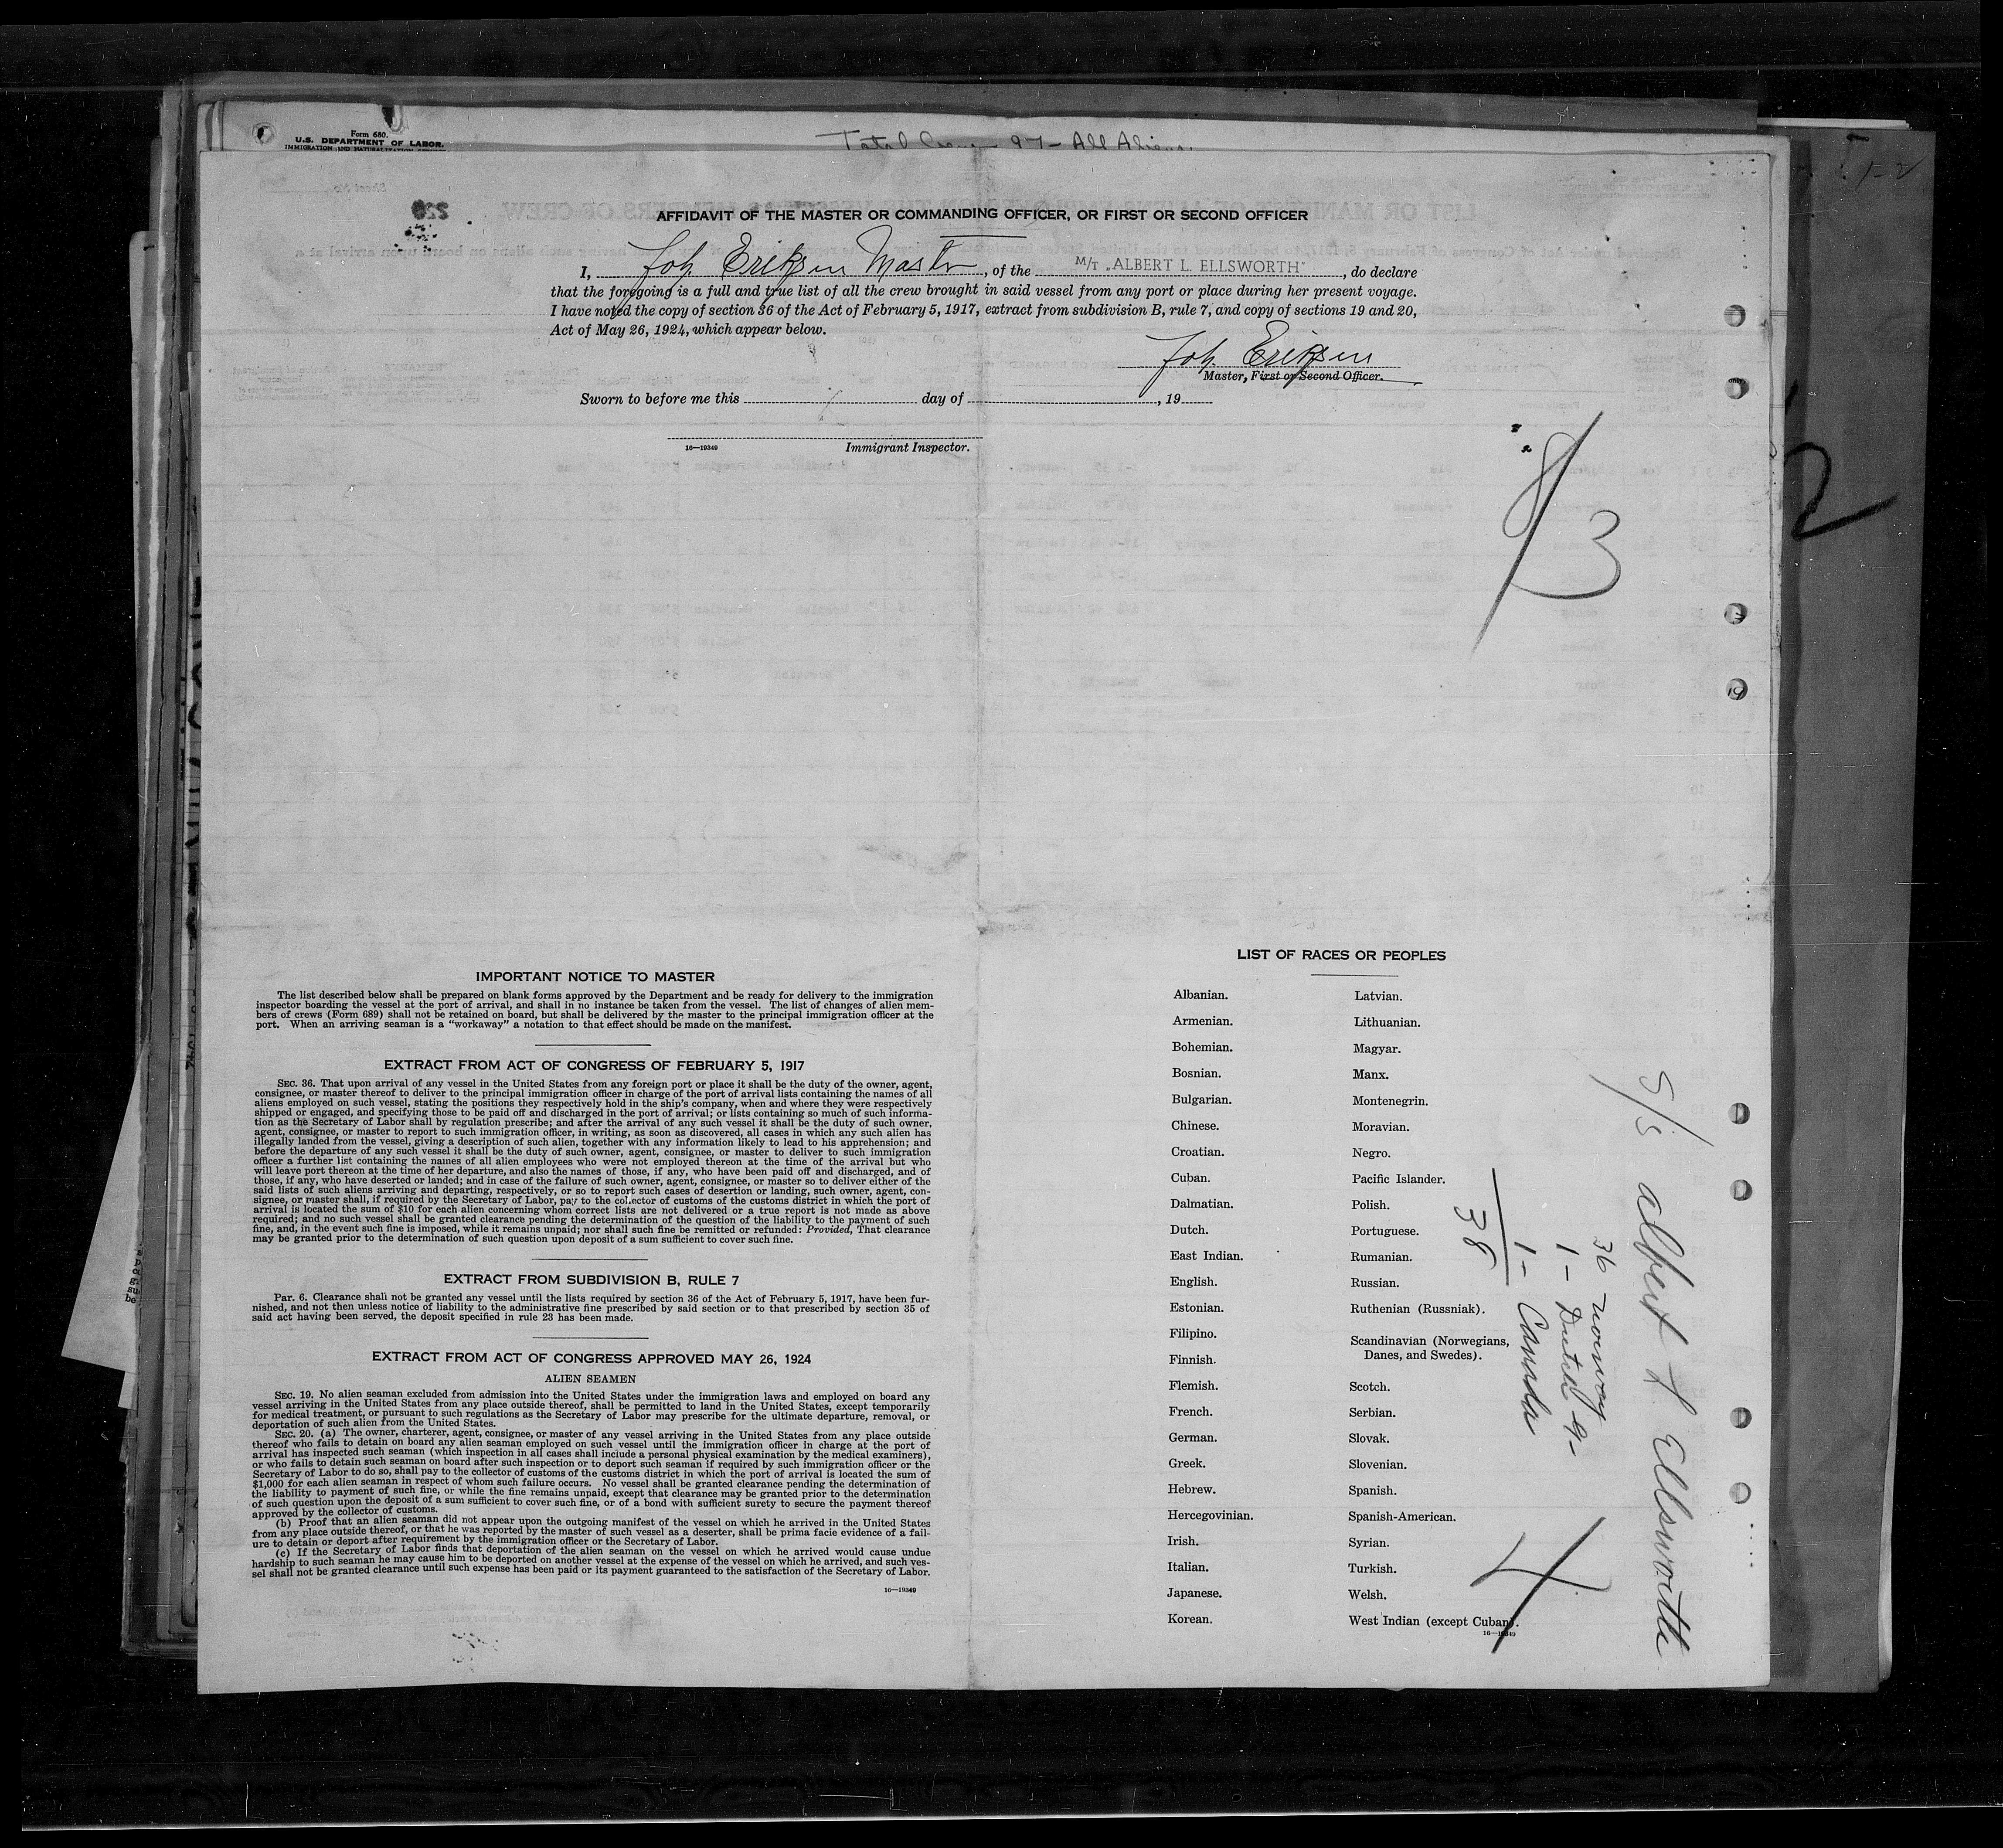 Form 680.
U.S. DEPARTMENT OF LABOR.
IMMIGRATION AND NATURALIZATION SERVICE
Total Crew 97 - All Aliens.
220
AFFIDAVIT OF THE MASTER OR COMMANDING OFFICER, OR FIRST OR SECOND OFFICER
I, Joh. Eriksen Master, of the M/T „ALBERT L. ELLSWORTH", do declare
that the foregoing is a full and true list of all the crew brought in said vessel from any port or place during her present voyage.
I have noted the copy of section 36 of the Act of February 5, 1917, extract from subdivision B, rule 7, and copy of sections 19 and 20,
Act of May 26, 1924, which appear below.
Joh. Eriksen
Master, First or Second Officer.
Sworn to before me this day of , 19
16—19349 Immigrant Inspector.
IMPORTANT NOTICE TO MASTER
The list described below shall be prepared on blank forms approved by the Department and be ready for delivery to the immigration
inspector boarding the vessel at the port of arrival, and shall in no instance be taken from the vessel. The list of changes of alien mem-
bers of crews (Form 689) shall not be retained on board, but shall be delivered by the master to the principal immigration officer at the
port. When an arriving seaman is a "workaway" a notation to that effect should be made on the manifest.
EXTRACT FROM ACT OF CONGRESS OF FEBRUARY 5, 1917
SEC. 36. That upon arrival of any vessel in the United States from any foreign port or place it shall be the duty of the owner, agent,
consignee, or master thereof to deliver to the principal immigration officer in charge of the port of arrival lists containing the names of all
aliens employed on such vessel, stating the positions they respectively hold in the ship's company, when and where they were respectively
shipped or engaged, and specifying those to be paid off and discharged in the port of arrival; or lists containing so much of such informa-
tion as the Secretary of Labor shall by regulation prescribe; and after the arrival of any such vessel it shall be the duty of such owner,
agent, consignee, or master to report to such immigration officer, in writing, as soon as discovered, all cases in which any such alien has
illegally landed from the vessel, giving a description of such alien, together with any information likely to lead to his apprehension; and
before the departure of any such vessel it shall be the duty of such owner, agent, consignee, or master to deliver to such immigration
officer a further list containing the names of all alien employees who were not employed thereon at the time of the arrival but who
will leave port thereon at the time of her departure, and also the names of those, if any, who have been paid off and discharged, and of
those, if any, who have deserted or landed; and in case of the failure of such owner, agent, consignee, or master so to deliver either of the
said lists of such aliens arriving and departing, respectively, or so to report such cases of desertion or landing, such owner, agent, con-
signee, or master shall, if required by the Secretary of Labor, pay to the collector of customs of the customs district in which the port of
arrival is located the sum of $10 for each alien concerning whom correct lists are not delivered or a true report is not made as above
required; and no such vessel shall be granted clearance pending the determination of the question of the liability to the payment of such
fine, and, in the event such fine is imposed, while it remains unpaid; nor shall such fine be remitted or refunded: Provided, That clearance
may be granted prior to the determination of such question upon deposit of a sum sufficient to cover such fine.
EXTRACT FROM SUBDIVISION B, RULE 7
Par. 6. Clearance shall not be granted any vessel until the lists required by section 36 of the Act of February 5, 1917, have been fur-
nished, and not then unless notice of liability to the administrative fine prescribed by said section or to that prescribed by section 35 of
said act having been served, the deposit specified in rule 23 has been made.
EXTRACT FROM ACT OF CONGRESS APPROVED MAY 26, 1924
ALIEN SEAMEN
SEC. 19. No alien seaman excluded from admission into the United States under the immigration laws and employed on board any
vessel arriving in the United States from any place outside thereof, shall be permitted to land in the United States, except temporarily
for medical treatment, or pursuant to such regulations as the Secretary of Labor may prescribe for the ultimate departure, removal, or
deportation of such alien from the United States.
SEC. 20. (a) The owner, charterer, agent, consignee, or master of any vessel arriving in the United States from any place outside
thereof who fails to detain on board any alien seaman employed on such vessel until the immigration officer in charge at the port of
arrival has inspected such seaman (which inspection in all cases shall include a personal physical examination by the medical examiners),
or who fails to detain such seaman on board after such inspection or to deport such seaman if required by such immigration officer or the
Secretary of Labor to do so, shall pay to the collector of customs of the customs district in which the port of arrival is located the sum of
$1,000 for each alien seaman in respect of whom such failure occurs. No vessel shall be granted clearance pending the determination of
the liability to payment of such fine, or while the fine remains unpaid, except that clearance may be granted prior to the determination
of such question upon the deposit of a sum sufficient to cover such fine, or of a bond with sufficient surety to secure the payment thereof
approved by the collector of customs.
(b) Proof that an alien seaman did not appear upon the outgoing manifest of the vessel on which he arrived in the United States
from any place outside thereof, or that he was reported by the master of such vessel as a deserter, shall be prima facie evidence of a fail-
ure to detain or deport after requirement by the immigration officer or the Secretary of Labor.
(c) If the Secretary of Labor finds that deportation of the alien seaman on the vessel on which he arrived would cause undue
hardship to such seaman he may cause him to be deported on another vessel at the expense of the vessel on which he arrived, and such ves-
sel shall not be granted clearance until such expense has been paid or its payment guaranteed to the satisfaction of the Secretary of Labor.
16—19349
LIST OF RACES OR PEOPLES
Albanian. Latvian.
Armenian. Lithuanian.
Bohemian. Magyar.
Bosnian. Manx.
Bulgarian. Montenegrin.
Chinese. Moravian.
Croatian. Negro.
Cuban. Pacific Islander.
Dalmatian. Polish.
Dutch. Portuguese.
East Indian. Rumanian.
English. Russian.
Estonian. Ruthenian (Russniak).
Filipino. Scandinavian (Norwegians,
Danes, and Swedes).
Finnish.
Flemish. Scotch.
French. Serbian.
German. Slovak.
Greek. Slovenian.
Hebrew. Spanish.
Hercegovinian. Spanish-American.
Irish. Syrian.
Italian. Turkish.
Japanese. Welsh.
Korean. West Indian (except Cuban).
16—19349
S/S Albert L Ellsworth
36 Norway
1 - Dutch
1 - Canada
38
4
3
2